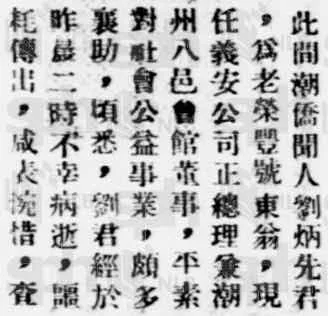 此間潮僑聞人劉炳先君
，爲老榮豐號東翁，現
任義安公司正總理兼潮
州八邑會館董事，平素
對社會公益事業，頗多
襄助，頃悉，劉君經於
昨晨二時不幸病逝，噩
耗傳出，咸表惋惜，查